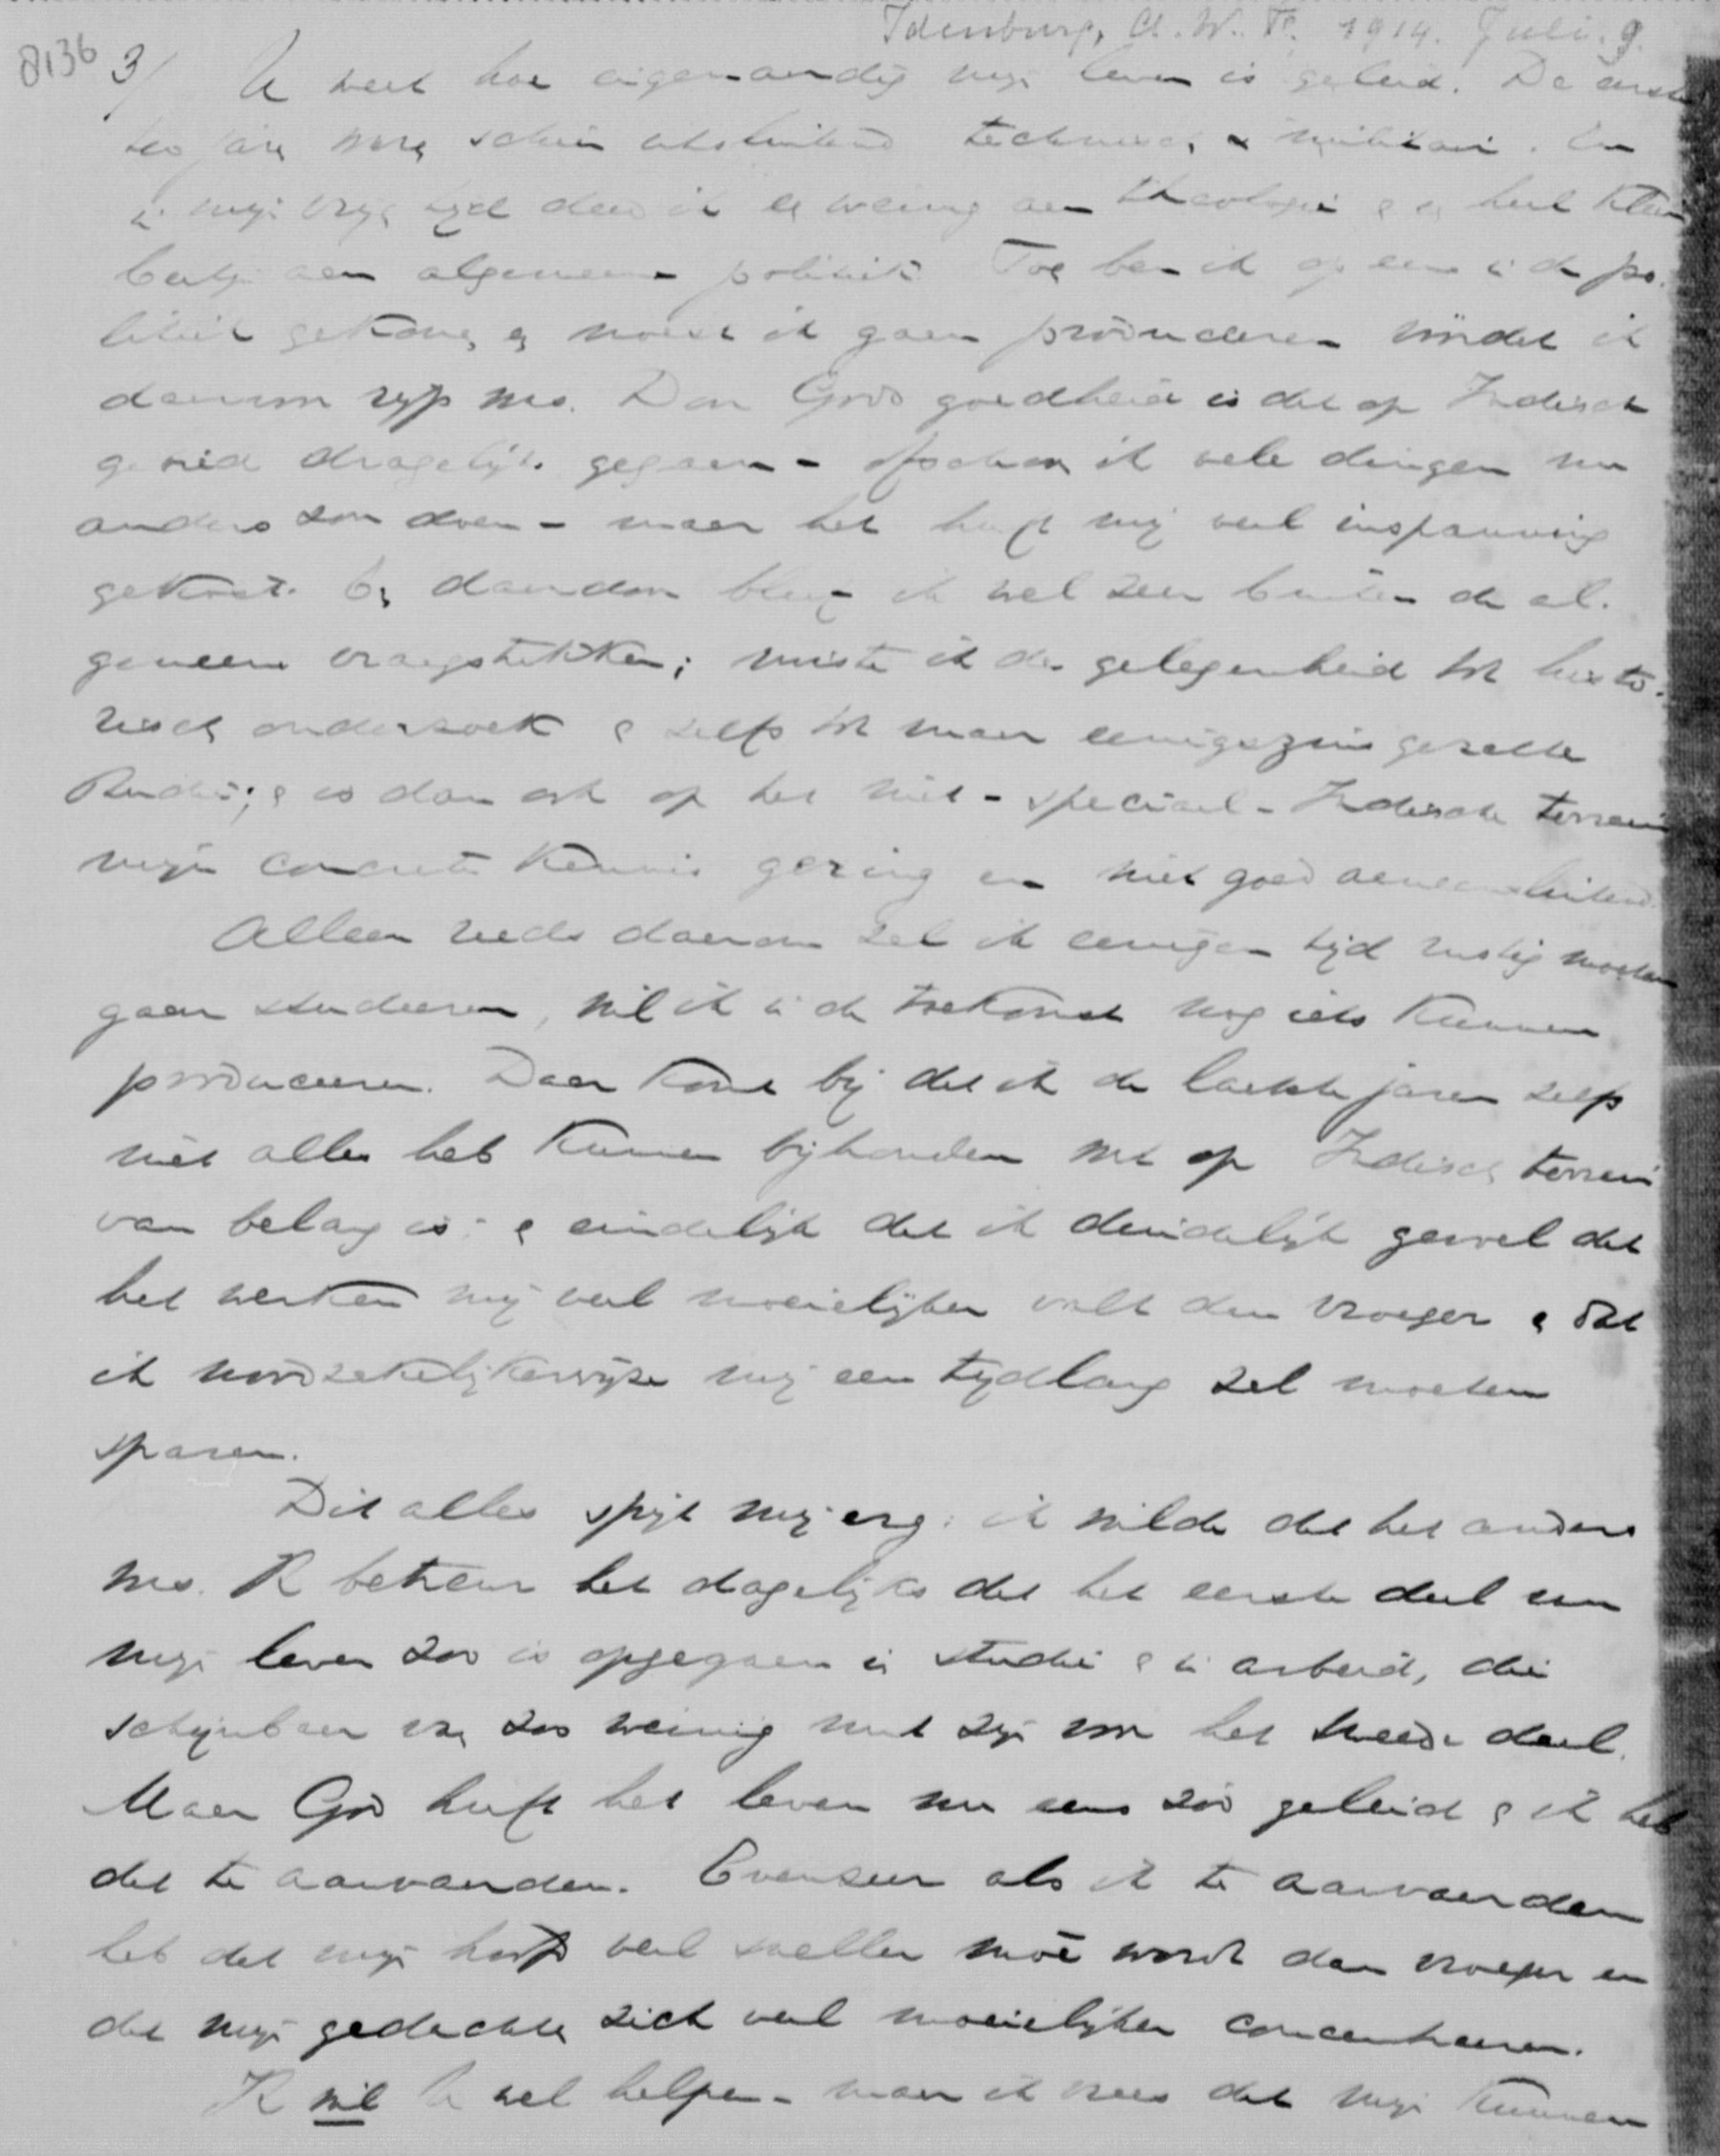 Idenburg, A.W.F. 1914. Juli. 9.
8136 3/ U weet hoe eigenaardig mijn leven is geleid. De eerste
jaren waren uitsluitend technisch & militair. En
in mijn vrijen tijd deed ik een weinig aan theologie & een heel klein
beetje aan algemeene politiek. Toen ben ik op eens in de po-
litiek gekomen en moest ik gaan produceeren vóórdat ik
daarvoor rijp was. Door Gods goedheid is dat op Indisch
gebied dragelijk gegaan - ofschoon ik vele dingen nu
anders zou doen - maar het heeft mij veel inspanning
gekost. En daardoor bleef ik wel zeer buiten de al-
gemeene vraagstukken; miste ik de gelegenheid tot histo-
risch onderzoek & zelfs tot maar eenigszins gezette
studie; & is dan ook op het niet-speciaal-Indische terrein
mijn concrete kennis gering en niet goed aaneensluitend.
Alleen reeds daarom zal ik eenigen tijd rustig moeten
gaan studeeren, wil ik in de toekomst nog iets kunnen
produceeren. Daar komt bij dat ik de laatste jaren zelfs
niet alles heb kunnen bijhouden wat op Indisch terrein
van belang is; & eindelijk dat ik duidelijk gevoel dat
het werken mij veel moeielijker valt dan vroeger & dat
ik noodzakelijkerwijze mij een tijdlang zal moeten
sparen.
Dit alles spijt mij erg: ik wilde dat het anders
was. Ik betreur het dagelijks dat het eerste deel van
mijn leven zoo is opgegaan in studie & in arbeid, die
schijnbaar van zoo weinig nut zijn voor het tweede deel.
Maar God heeft het leven nu eens zóó geleid & ik heb
dat te aanvaarden. Evenzeer als ik te aanvaarden
heb dat mijn hoofd veel sneller moê wordt dan vroeger en
dat mijn gedachten zich veel moeielijker concentreeren.
Ik wil U wel helpen - maar ik vrees dat mijn kunnen